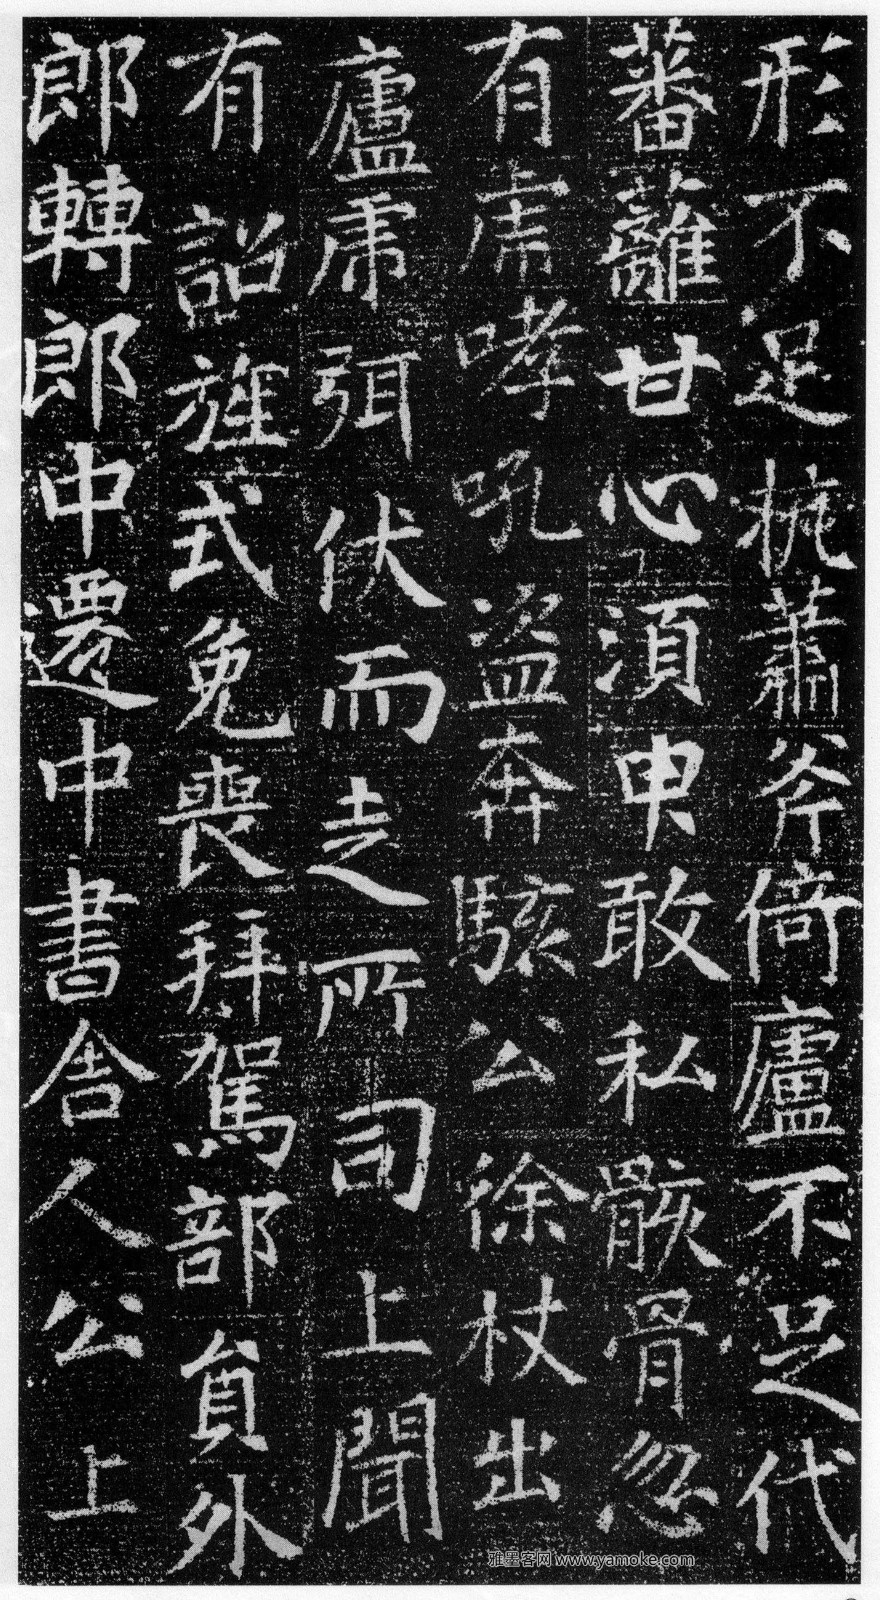 形不足梳蕭斧倚廬不足代
蕃蘺甘心湏申敢私骸骨忽
有虎哮吼盗奔駭公徐杖出
廬虎弭伏而走所司上聞
有詔旌式免喪拜駕部員外
郎轉郎中遷中書舍人公上
雅墨客网 www.yamoke.com